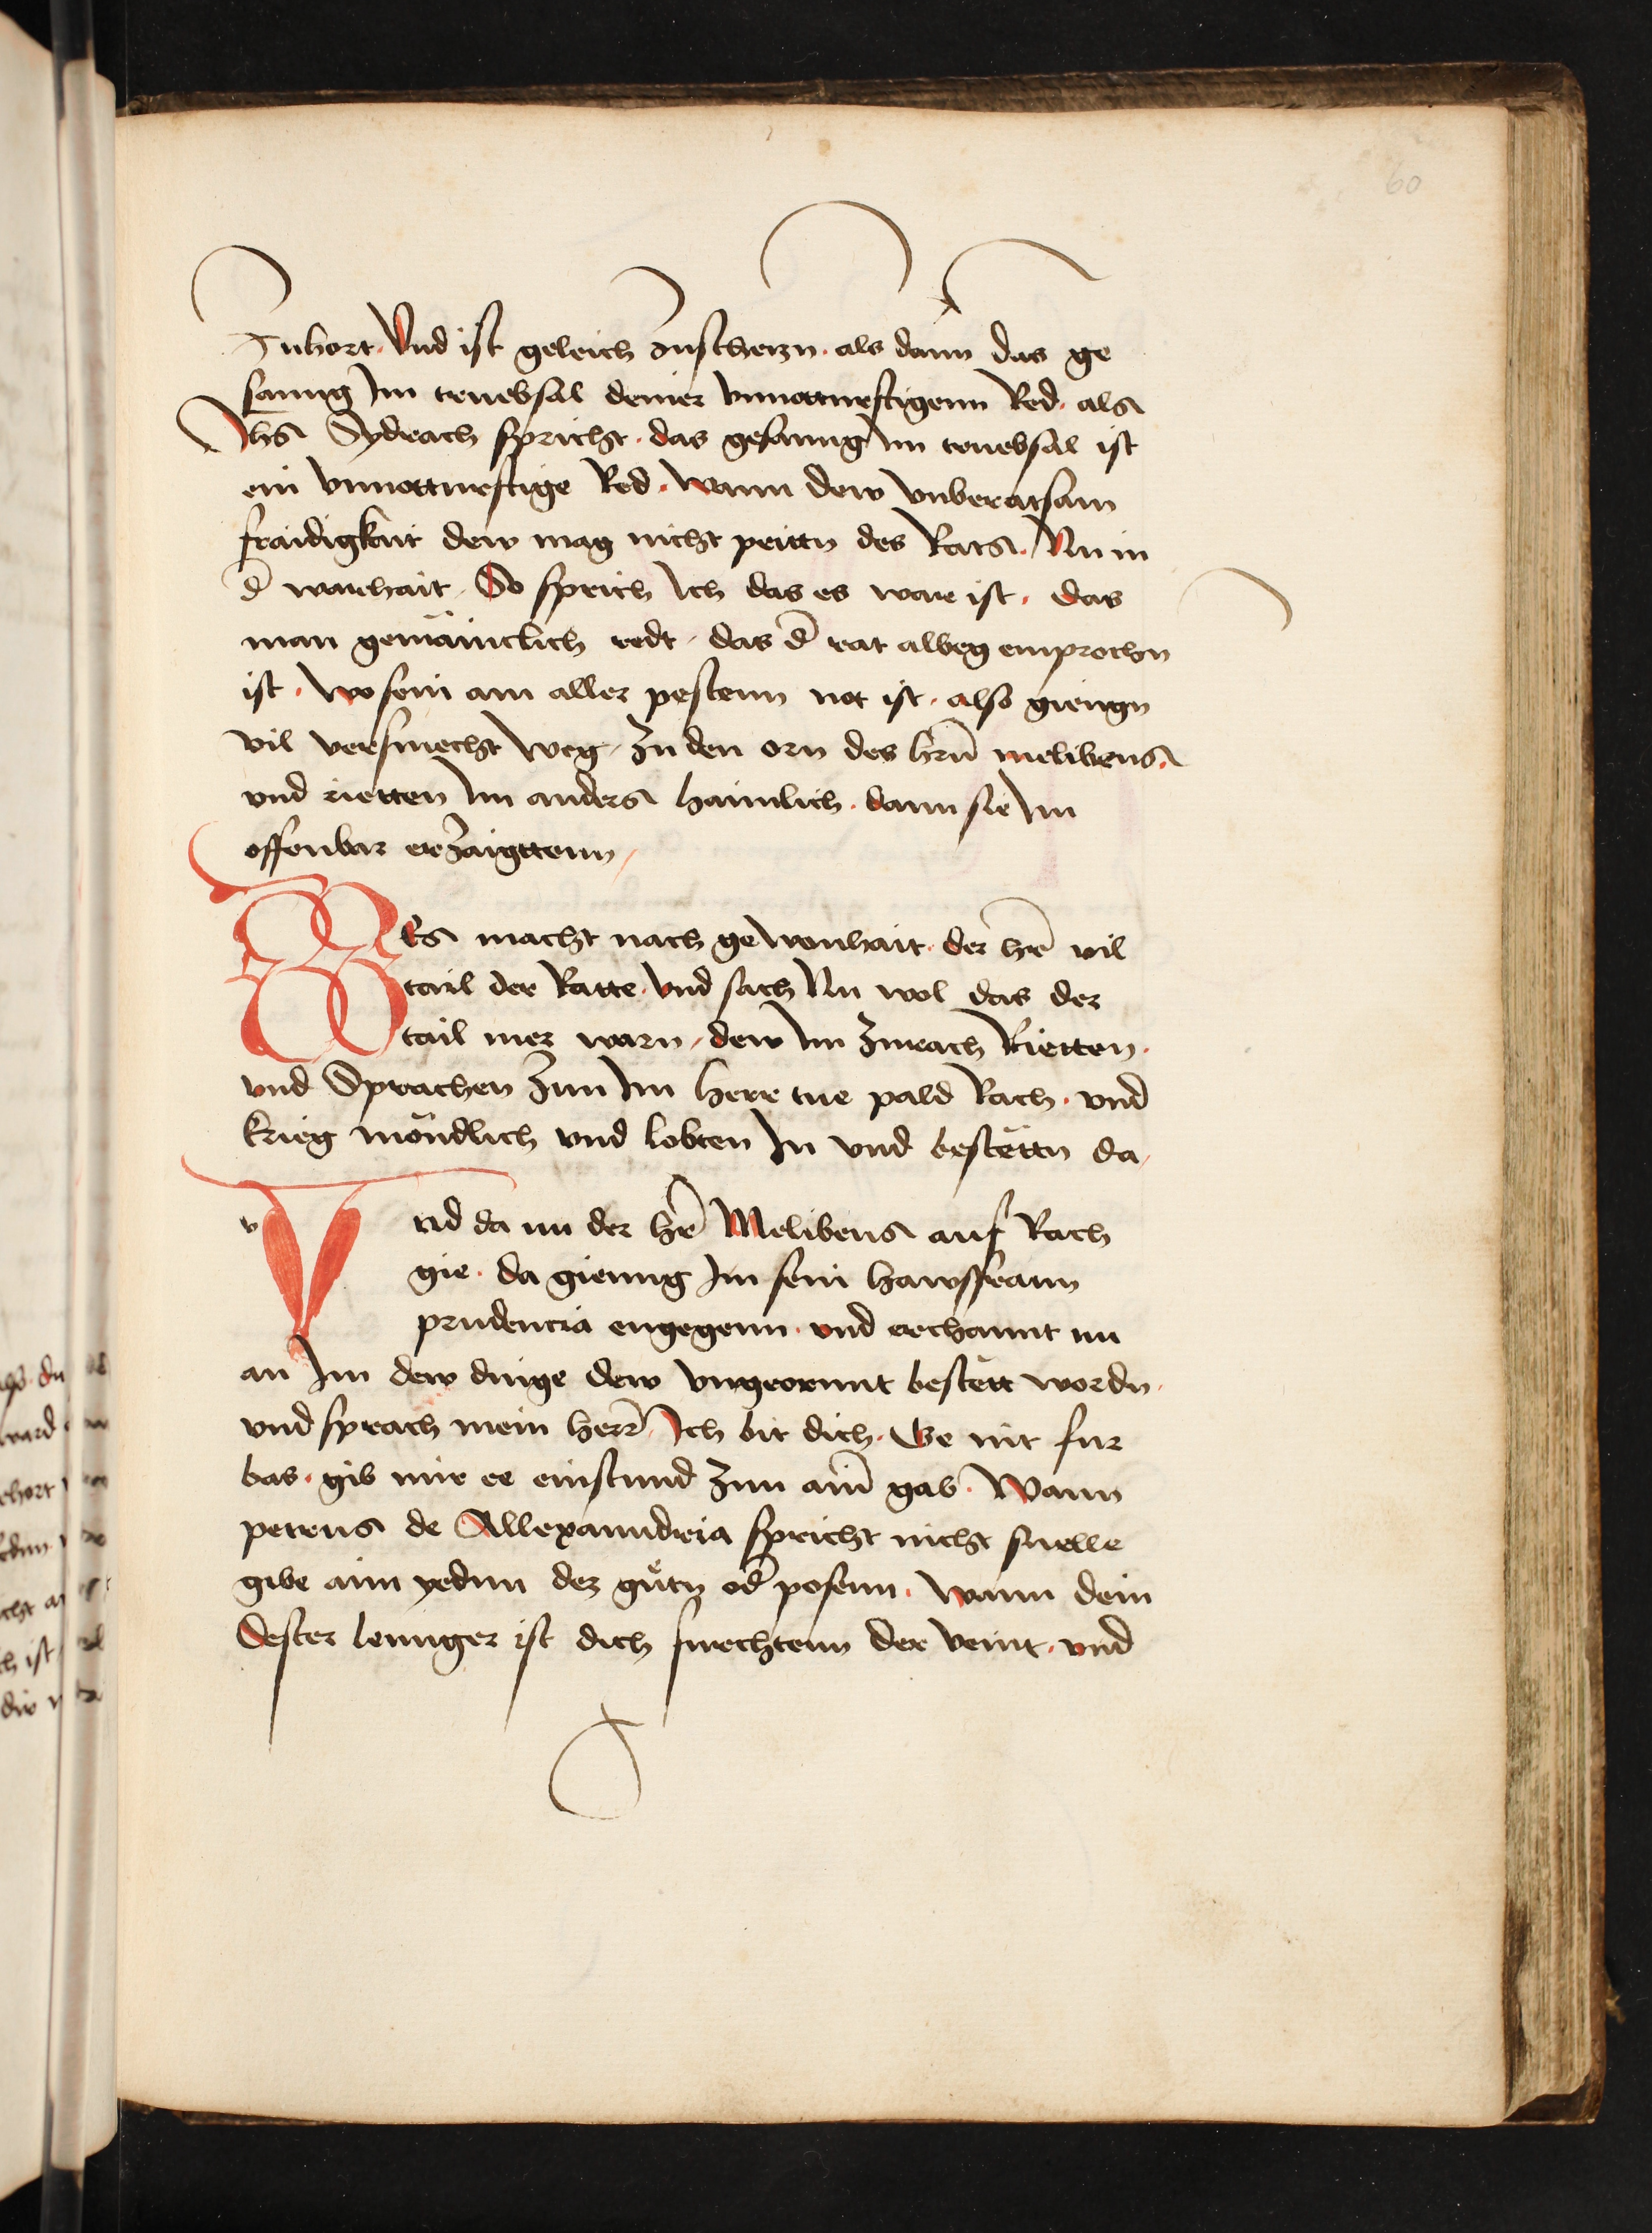 60
Tuhort. Vnd ist geleich Zuscherzn. als dann das ge
sanng Im truebsal deiner vnnotturftigenn Red. als
Ihs Sydrach spricht. das gesanng Im truebsal ist
ein vnnotturftige Red. wann dew vnberatsam
fraidigkait dew mag nicht peittn des Rats. Nu in
d̄ warhait. So sprich Ich das es ware ist. das
man gemäincklich redt. das d̄ rat albeg emprochn
ist. wo sein am aller pestenn not ist. also giengn
vil versmecht weg. Zu den orn des hrn̄ melibeus.
vnd rietten Im anders haimlich. dann sie Im
offenbar erzaigttenn
Es macht nach gewonhait. der hr̄e vil
tail der Ratte. vnd sach Nu wol das der
tail mer warn. dew Im Zurach Rietten.
vnd Sprachen Zun Im herre tue pald Rach. vnd
krieg möndlich vnd lobten In vnd bestättn da
v Vnd da nu der hr̄e Melibeus auf Rach
gie. da gienng Im sein hawsfrann
prudencia engegenn. vnd erchannt nu
an Im dew dinge dew vngeornnt bestett wordn.
vnd sprach mein herr̄ Ich bit dich. Ge nit fur
bas. gib mir ee einstund Zun ain̄ gab. Wann
petrus de Allexanndria spricht nicht snelle
gibe ainn yednn dez gůtn od̄ posenn. wann dein
Dester lennger ist dich furchtenn der veint. vnd